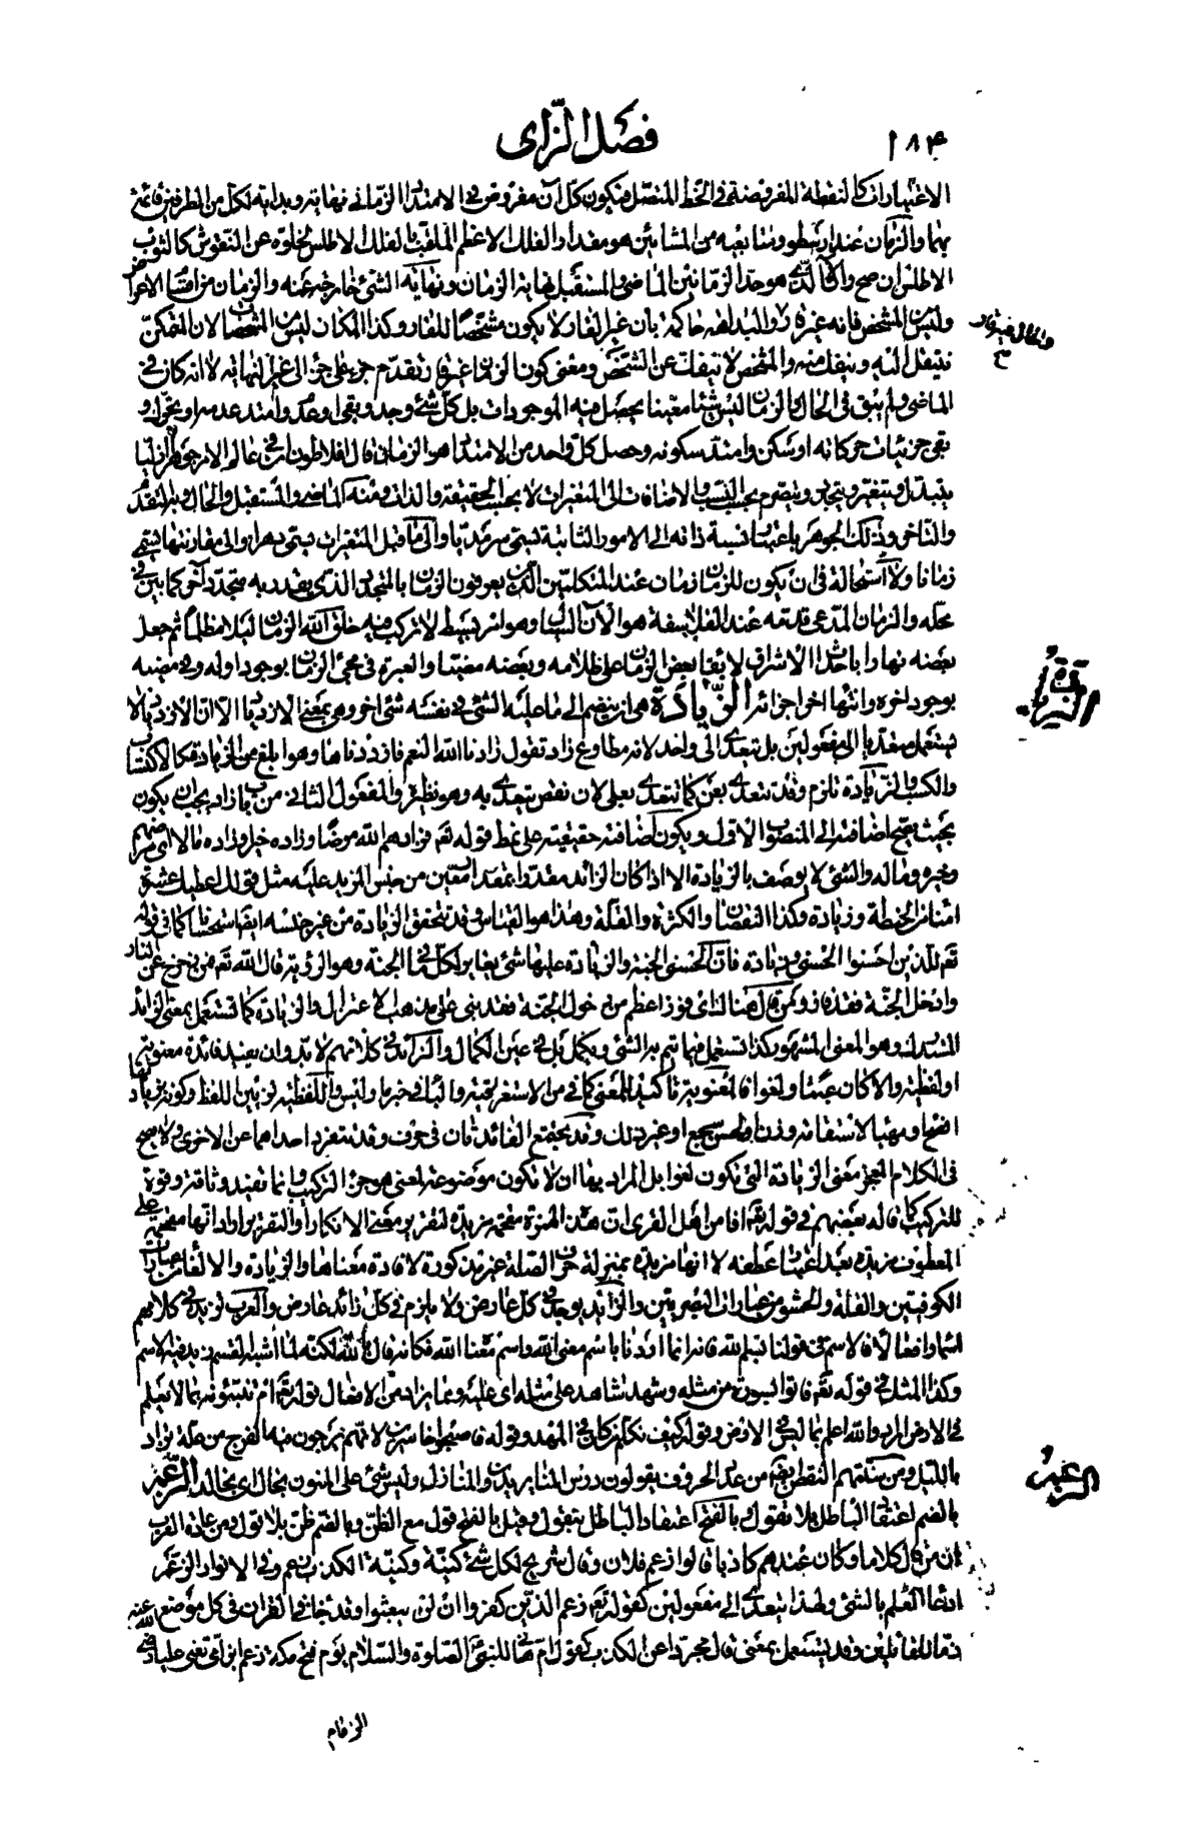 ١٨٤ فصل الزاى
الاعتبارات كالنقطة المفروضة في الخط المتصل فيكون كل آن مفروض في الامتداد الزماني نهاية وبداية لكل من الطرفين قائمة
بهما والزمان عند ارسطو ومتابعيه من المشائين هو مقدار الفلك الاعظم الملقب بالفلك الاطلس لخلوه عن النقوش كالثوب
الاطلس ان صح والآن الذي هو حد الزمانين الماضي والمستقبل نهاية الزمان ونهاية الشئ خارجة عنه والزمان من اقسام الاعراض
وليس من المشخصات فانه غير قار والبداهة حاكمة بان غير القار لا يكون مشخصا للقار وكذا المكان ليس من المشخصات لان المتمكن
والحال فيه قار
ينتقل اليه وينفك منه والمشخص لا ينفك عن الشخص ومعنى كون الزمان غير قار تقدم جزء على جزء الى غير النهاية لا انه كان في
الماضي ولم يبق في الحال والزمان ليس شيئا معينا يحصل فيه الموجودات بل كل شئ وجد وبقي او عدم وامتد عدمه او تحرك و
بقي جزئيات حركاته او سكن وامتد سكونه وحصل كل واحد من الامتداد هو الزمان قال افلاطون ان في عالم الامر جوهرا ازليا
يتبدل ويتغير ويتجدد ويتصرم بحسب النسب والاضافات الى المتغيرات لا بحسب الحقيقة والذات ومنه الماضي والمستقبل والحال وبه التقدم
والتأخر وذلك الجوهر باعتبار نسبة ذاته الى الامور الثابتة تسمى سرمديا والى ما قبل المتغيرات تسمى دهرا والى مقارنتها تسمى
زمانا ولا استحالة في ان يكون للزمان زمان عند المتكلمين الذين يعرفون الزمان بالمتجدد الذي يقدر به متجدد آخر كما بين في
محله والزمان المدعى قدمه عند الفلاسفة هو الآن السيال وهو امر بسيط لا تركب فيه خلق الله الزمان ليلا مظلما ثم جعل
بعضه نهارا باحداث الاشراق لابقاء بعض الزمان على ظلامه وبعضه مضيئا والعبرة في مجئ الزمان بوجود اوله وفي مضيه
بوجود آخره وانتهاء آخر اجزائه الزيادة هي ان ينضم الى ما عليه الشئ في نفسه شئ آخر وهي بمعنى الازدياد الا ان الازدياد لا
الزيادة
يستعمل متعديا الى مفعولين بل يتعدى الى واحد لانه مطاوع زاد تقول زادنا الله النعم فازددناها وهو ابلغ من الزيادة كالاكتساب
والكسب والزيادة تلزم وقد تتعدى بعن كما تتعدى بعلى لان نقص يتعدى به وهو نظيره والمفعول الثاني من باب زاد يجب ان يكون
بحيث يصح اضافته الى المنصوب الاول ويكون اضافته حقيقية على نمط قوله تعالى فزادهم الله مرضا وزاده خيرا وزاده مالا اي مرضهم
وخيره وماله والشئ لا يوصف بالزيادة الا اذا كان الزائد مقدرا بمقدار معين من جنس المزيد عليه مثل قولك اعطيك عشرة
امناء من الحنطة وزيادة وكذا النقصان والكثرة والقلة وهذا هو القياس وقد تتحقق الزيادة من غير جنسه ايضا استحسانا كما في قوله
تعالى للذين احسنوا الحسنى وزيادة فان الحسنى الجنة والزيادة عليها شئ يغاير لكل ما في الجنة وهو الرؤية قال الله تعالى فمن زحزح عن النار
وادخل الجنة فقد فاز ومن قال هنا اي فوز اعظم من دخول الجنة فقد بنى على مذهب الاعتزال والزيادة كما تستعمل بمعنى الزائد
المستدرك وهو المعنى المشهور كذا تستعمل فيما يتم به الشئ ويكمل بل في عين الكمال والزائد في كلامهم لا بد وان يفيد فائدة معنوية
او لفظية والا كان عبثا ولغوا فالمعنوية تأكيد المعنى كما في من الاستغراقية والباء في خبر ما وليس واللفظية تزيين اللفظ وكونه بزيادتها
افصح او مهيأ لاستقامة وزن او لحسن سجع او غير ذلك وقد يجتمع الفائدتان في حرف وقد تنفرد احداهما عن الاخرى ولا يصح
في الكلام المعجز معنى الزيادة التي تكون لغوا بل المراد بها ان لا تكون موضوعة لمعنى هو جزء التركيب وانما تفيد وثاقة وقوة
للتركيب كما قاله بعضهم في قوله تعالى افامن اهل القرى ان هذه الهمزة مقحمة مزيدة لتقرير معنى الانكار او التقرير اراد انها مقحمة على
المعطوف مزيدة بعد اعتبار عطفه لا انها مزيدة بمنزلة حرف الصلة غير مذكورة لافادة معناها والزيادة والالغاء من عبارات
الكوفيين والصلة والحشو من عبارات البصريين والزائد يوجد في كل عارض ولا يلزم في كل زائد عارض والعرب تزيد في كلامهم
اسماء وافعالا فالاسم في قولنا بسم الله فانه انما اردنا باسم معنى الله واسم معناه الله فكانه قال بالله لكنه لما اشبه القسم زيد فيه الاسم
وكذا المثل في قوله تعالى فأتوا بسورة من مثله وشهد شاهد على مثله اي عليه ومما يزاد من الافعال قوله تعالى ام تنبئونه بما لا يعلم
في الارض المراد والله اعلم بما ليس في الارض وقوله كيف نكلم من كان في المهد وقوله فاصبحوا خاسرين لانهم يرجون منه الفرج من علة تزاد
بالليل ومن سنتهم النقص من عدد الحروف يقولون دوس المنا يريدون المنازل وليس شئ على المنون بخال اي بخالد الزعم
الزعم
بالضم اعتقاد الباطل بلا تقول وبالفتح اعتقاد الباطل بتقول وقيل بالفتح قول مع الظن وبالضم ظن بلا قول ومن عادة العرب
ان من قال كلاما وكان عندهم كاذبا قالوا زعم فلان وقال شريح لكل شئ كنية وكنية الكذب زعم وفي الانوار الزعم
ادعاء العلم بالشئ ولهذا يتعدى الى مفعولين كقوله تعالى زعم الذين كفروا ان لن يبعثوا وقد جاء في القرآن في كل موضع
ذما للقائلين وقد يستعمل بمعنى قال مجردا عن الكذب كقول ام هانئ للنبي عليه الصلوة والسلام يوم فتح مكة زعم ابن امي تعني عليا رضي الله عنه
الزقام